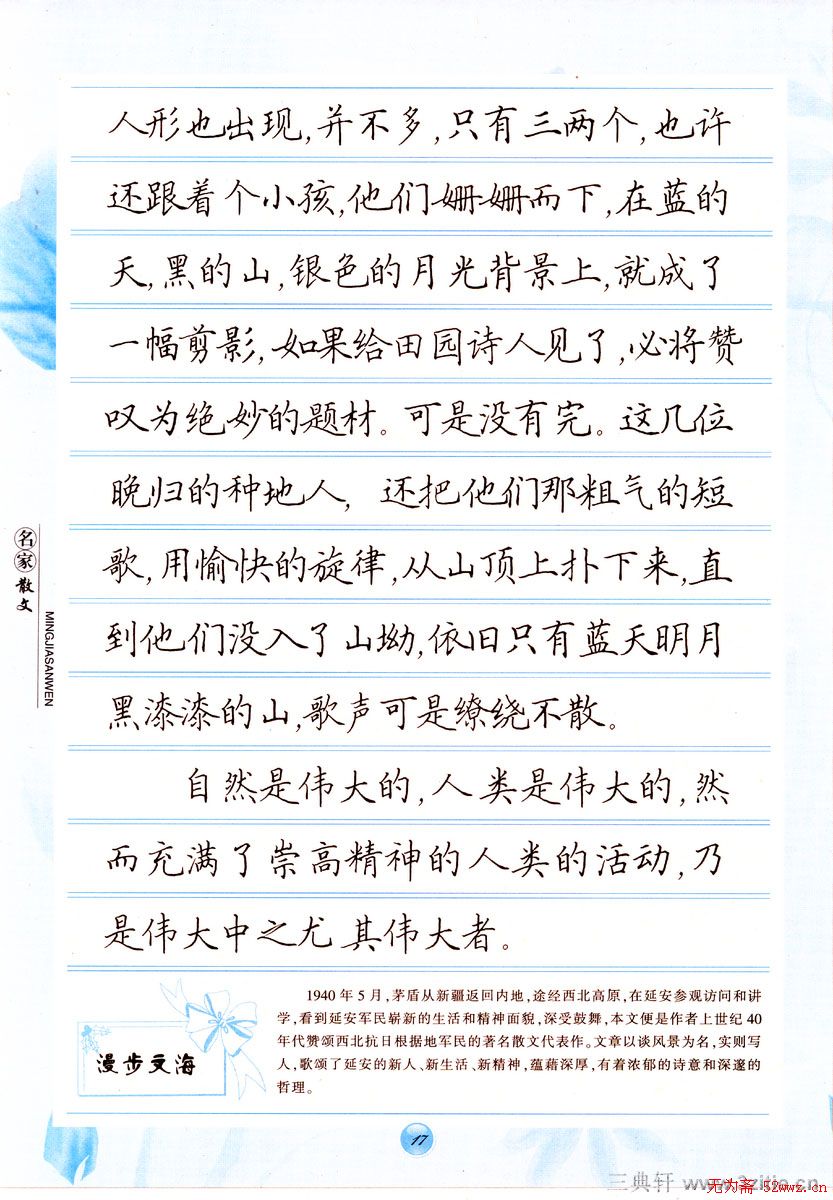 人形也出现,并不多,只有三两个,也许
还跟着个小孩,他们姗姗而下,在蓝的
天,黑的山,银色的月光背景上,就成了
一幅剪影,如果给田园诗人见了,必将赞
叹为绝妙的题材。可是没有完。这几位
晚归的种地人,还把他们那粗气的短
歌,用愉快的旋律,从山顶上扑下来,直
到他们没入了山坳,依旧只有蓝天明月
黑漆漆的山,歌声可是缭绕不散。
自然是伟大的,人类是伟大的,然
而充满了崇高精神的人类的活动,乃
是伟大中之尤其伟大者。
名家散文
MINGJIASANWEN
漫步文海
1940年5月,茅盾从新疆返回内地,途经西北高原,在延安参观访问和讲
学,看到延安军民崭新的生活和精神面貌,深受鼓舞,本文便是作者上世纪40
年代赞颂西北抗日根据地军民的著名散文代表作。文章以谈风景为名,实则写
人,歌颂了延安的新人、新生活、新精神,蕴藉深厚,有着浓郁的诗意和深邃的
哲理。
17
三典轩
无为斋 52wwz.cn